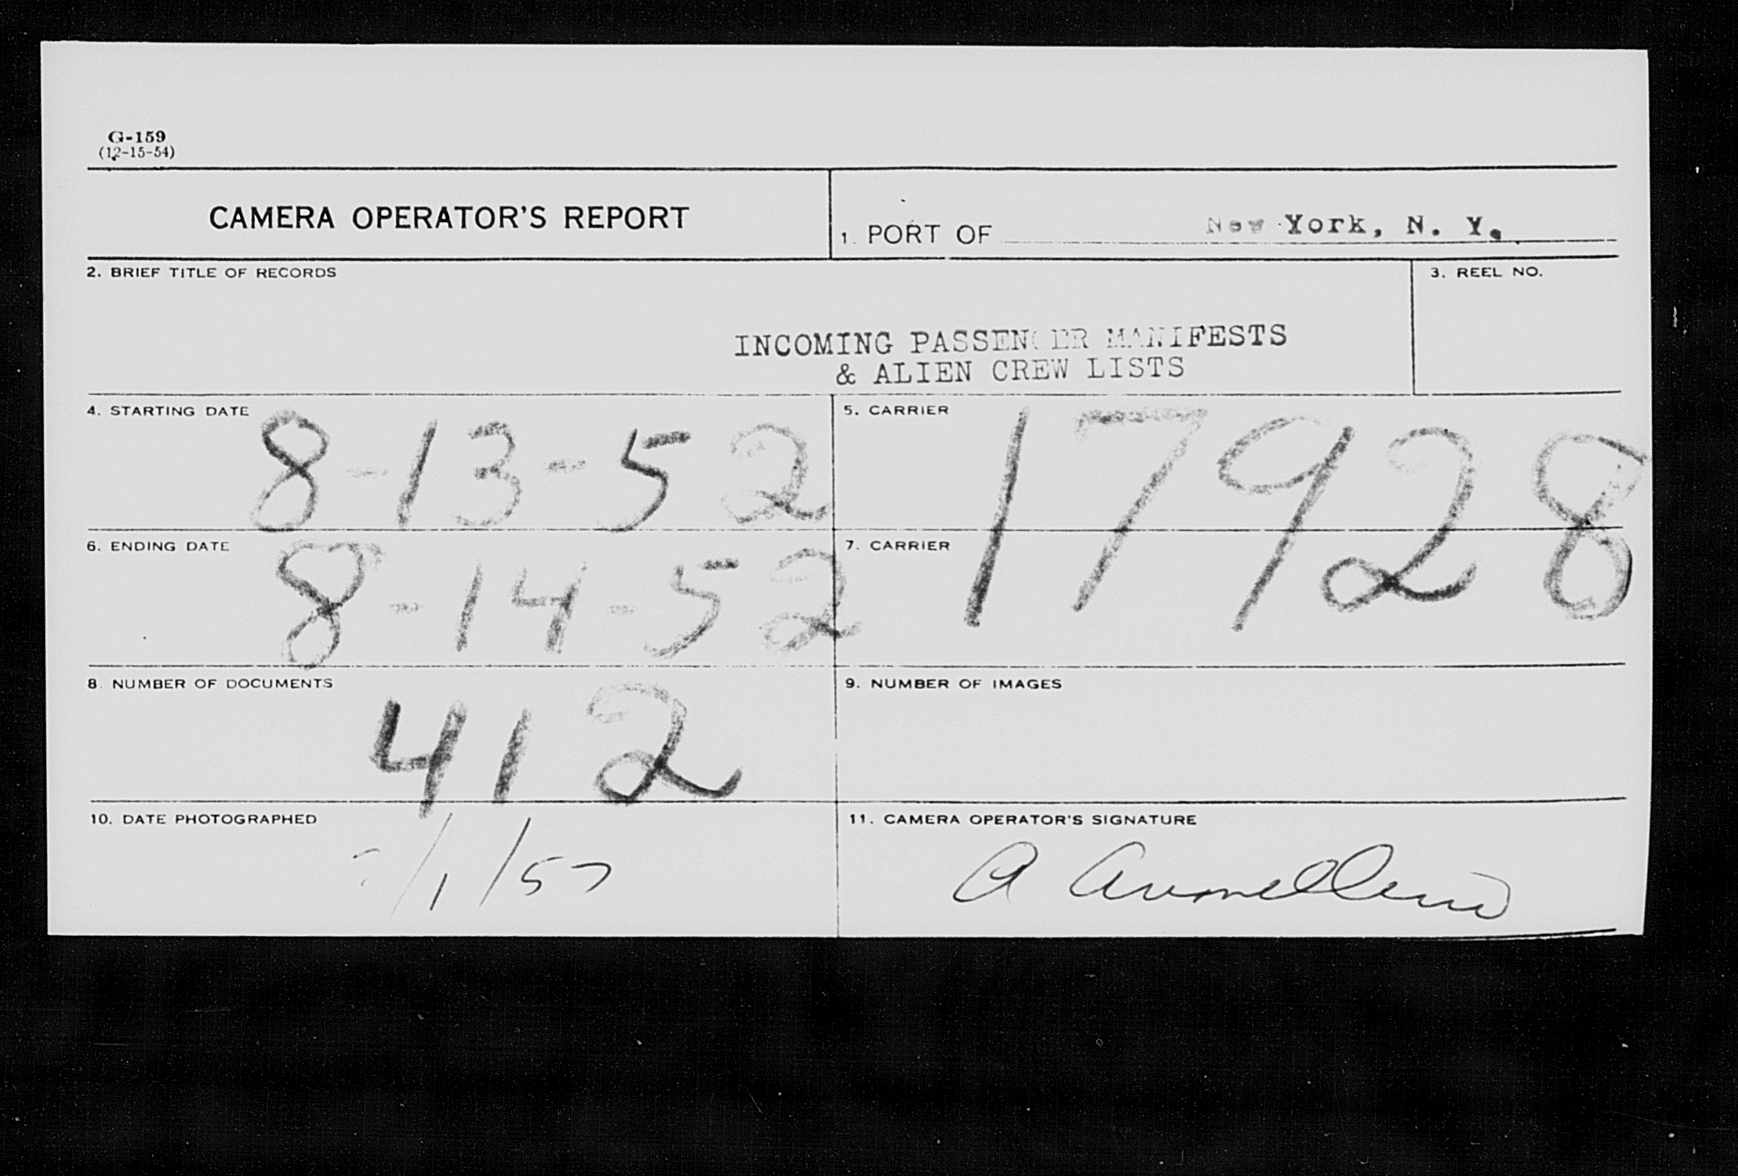 G-159
(12-15-54)
CAMERA OPERATOR'S REPORT
1. PORT OF New York, N. Y.
2. BRIEF TITLE OF RECORDS
3. REEL NO.
INCOMING PASSENGER MANIFESTS
& ALIEN CREW LISTS
4. STARTING DATE
8-13-52
5. CARRIER
17928
6. ENDING DATE
8-14-52
7. CARRIER
8. NUMBER OF DOCUMENTS
412
9. NUMBER OF IMAGES
10. DATE PHOTOGRAPHED
/1/57
11. CAMERA OPERATOR'S SIGNATURE
A